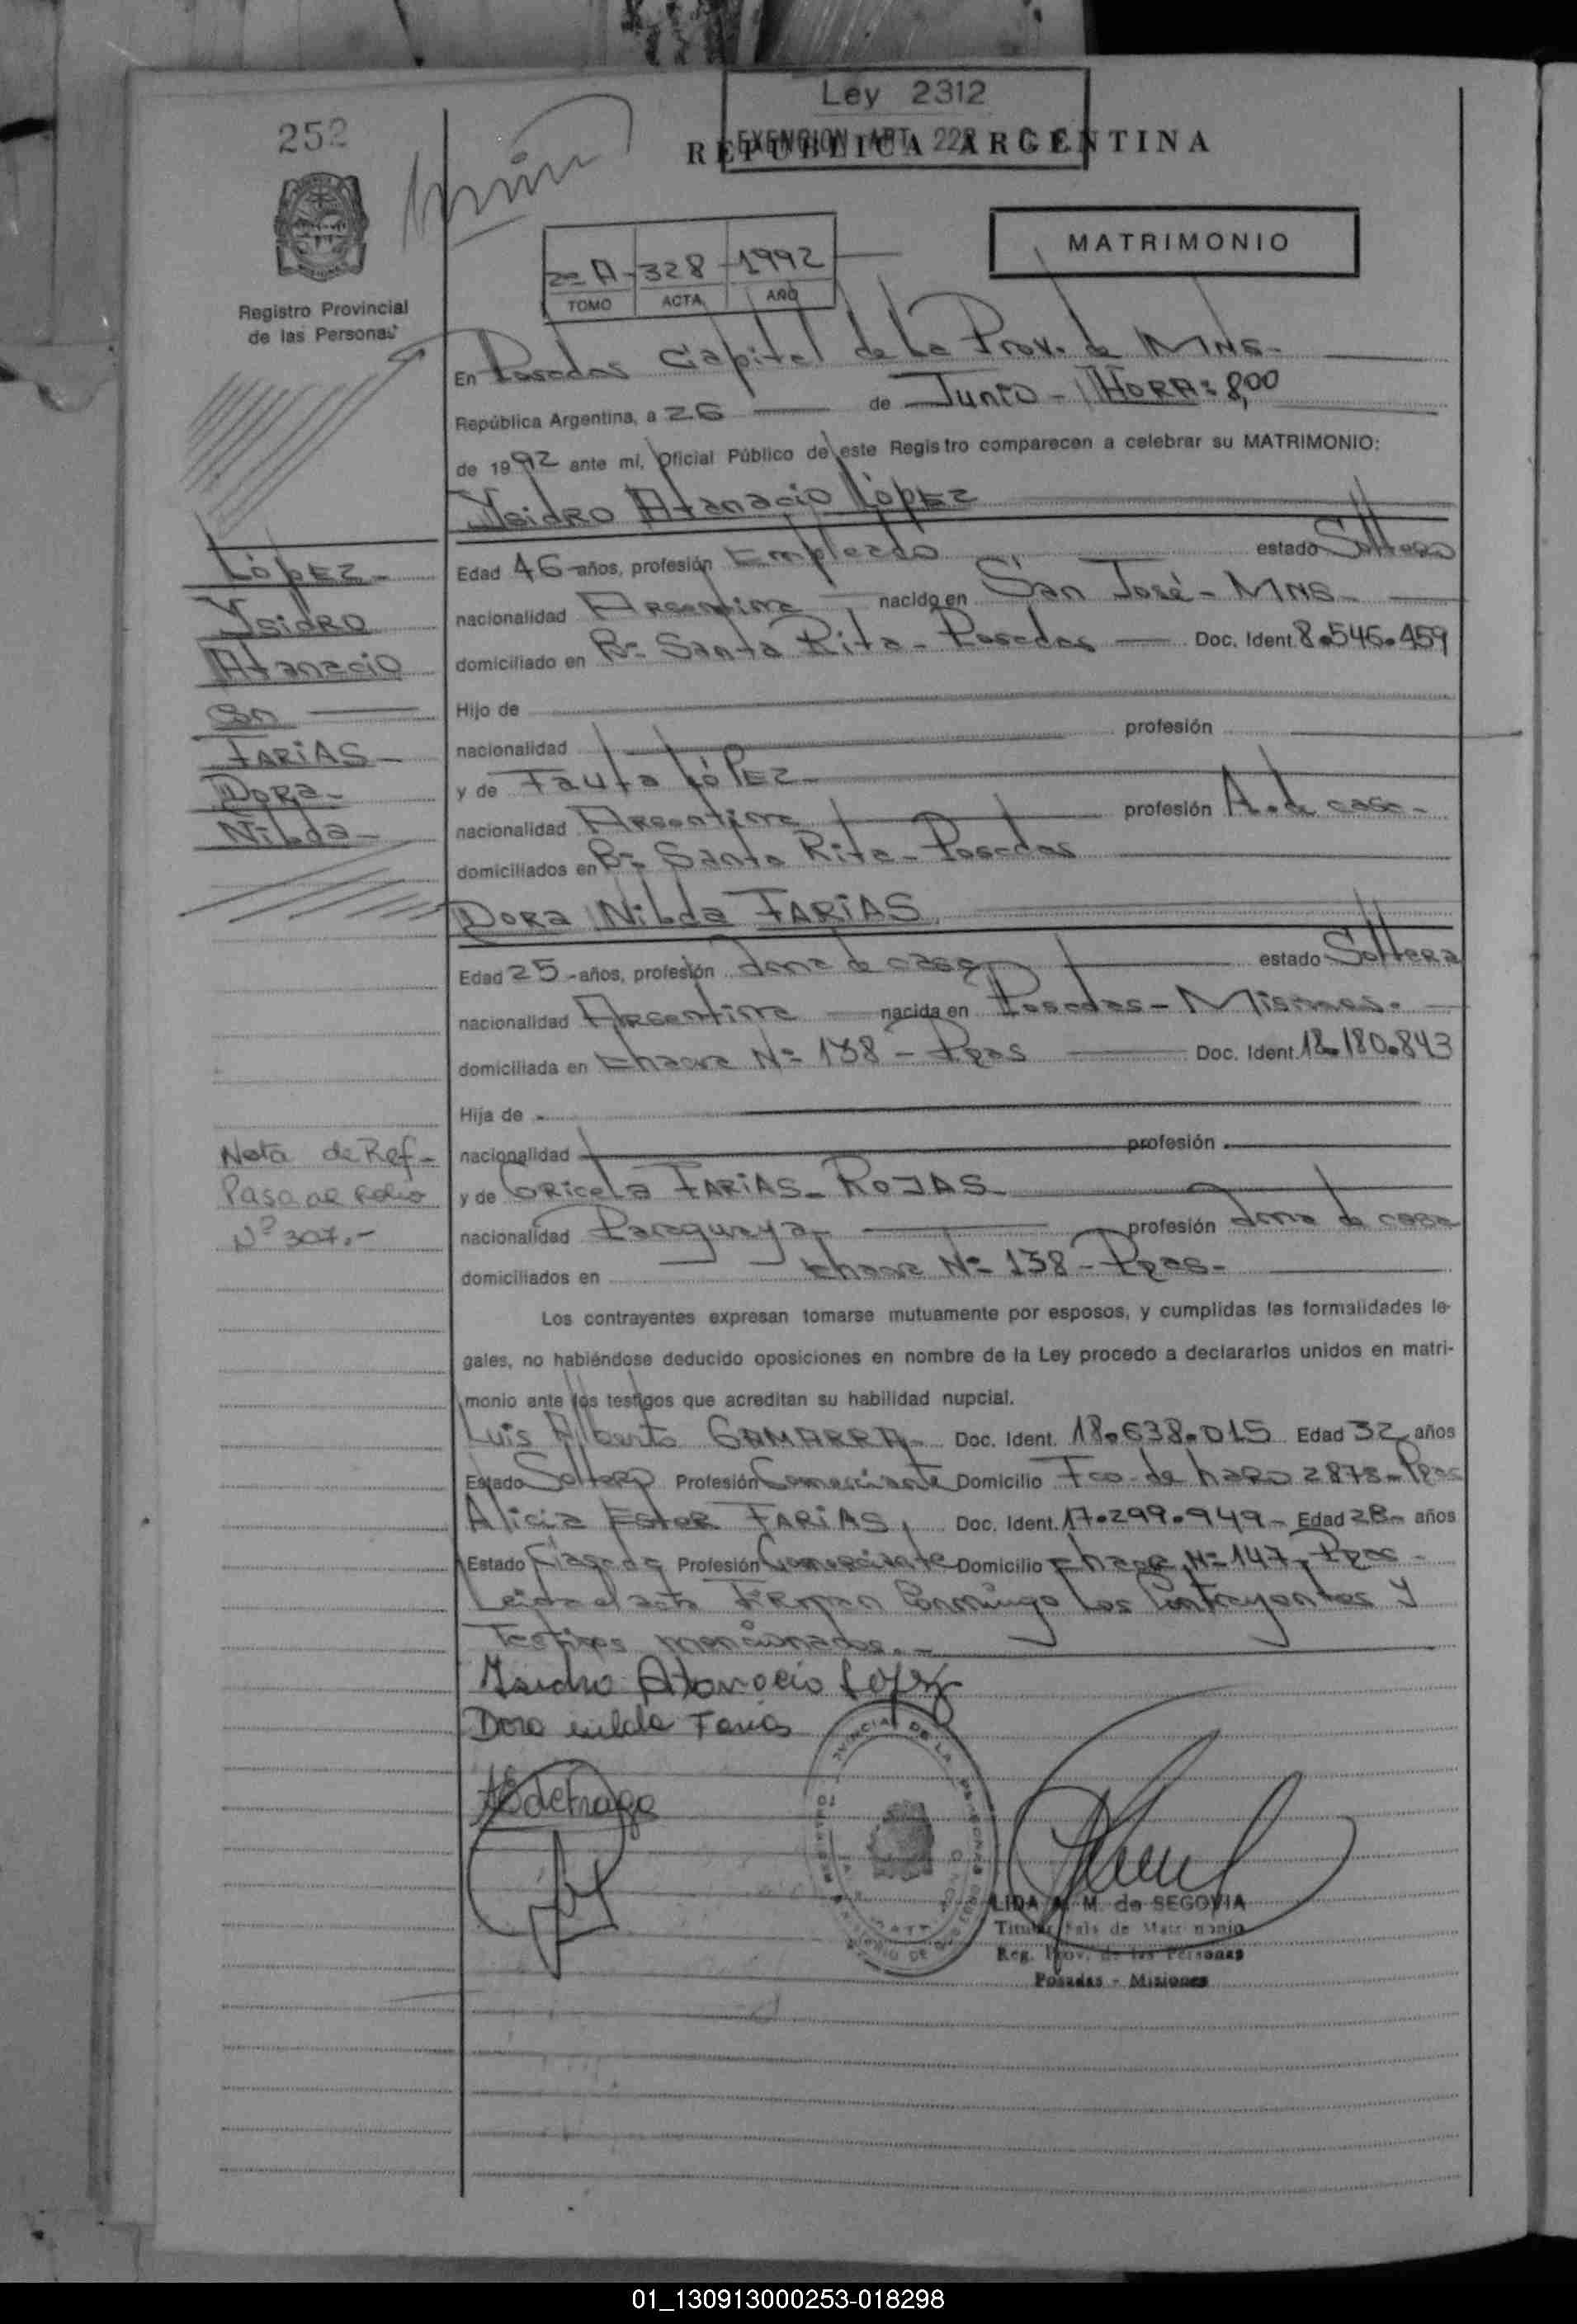 Ley 2312
EXENCION ART. 228 C F
252
REPUBLICA ARGENTINA
MATRIMONIO
2º A - 328 - 1992
TOMO ACTA AÑO
Registro Provincial
de las Personas
En Posadas Capital de La Prov. de MNS.
República Argentina, a 26 de Junio - HORA: 8,00
de 1992 ante mí, Oficial Público de este Registro comparecen a celebrar su MATRIMONIO:
Ysidro Atanacio LópEz
Edad 46 años, profesión Empleado estado Soltero
nacionalidad Argentina nacido en San José - MNS -
domiciliado en Bº Santa Rita - Posadas Doc. Ident. 8.546.459
Hijo de
nacionalidad profesión
y de Fausta LóPEz -
nacionalidad Argentina profesión A. de casa -
domiciliados en Bº Santa Rita - Posadas
Dora Nilda FARiAS
Edad 25 - años, profesión Ama de casa estado Soltera
nacionalidad Argentina nacida en Posadas - Misiones -
domiciliada en Chacra Nº 138 - Pdas Doc. Ident. 18.180.843
Hija de
nacionalidad profesión
y de Gricela FARiAS - ROJAS -
nacionalidad Paraguaya profesión Ama de casa
domiciliados en Chacra Nº 138 - Pdas -
Los contrayentes expresan tomarse mutuamente por esposos, y cumplidas las formalidades le-
gales, no habiéndose deducido oposiciones en nombre de la Ley procedo a declararlos unidos en matri-
monio ante los testigos que acreditan su habilidad nupcial.
Luis Alberto GAMARRA - Doc. Ident. 18.638.015 Edad 32 años
Estado Soltero Profesión Comerciante Domicilio Fco. de haro 2878 - Pdas
Alicia Ester FARiAS, Doc. Ident. 17.299.949 - Edad 28 - años
Estado Casada Profesión Comerciante Domicilio Chacra Nº 147, Pdas -
Leida el acta Firman Conmigo Los Contrayentes y
Testigos mencionados. -
Ysidro Atanacio Lopez
Dora nilda Farias
LIDA M. de SEGOVIA
Titular de Matrimonio
Reg. Prov. de las Personas
Posadas - Misiones
LópEz -
Ysidro
Atanacio
Con
FARiAS -
Dora -
Nilda -
Nota de Ref -
Pasa al folio
Nº 307. -
01_130913000253-018298